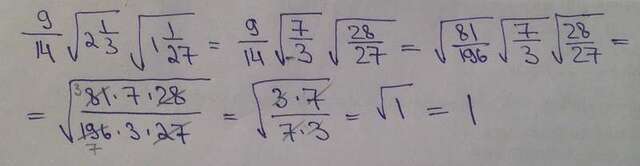 9/14 √(2 1/3) √(1 1/27) = 9/14 √(7/3) √(28/27) = √(81/196) √(7/3) √(28/27) =
= √((³81·7·28)/(196·3·27 7)) = √((3·7)/(7·3)) = √1 = 1